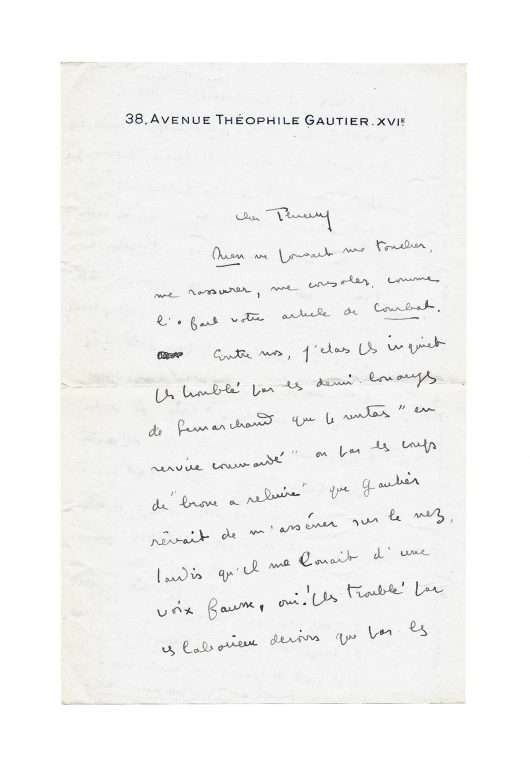 38, AVENUE THÉOPHILE GAUTIER. XVIE
cher
Rien ne pouvait me toucher,
me rassurer, me consoler, comme
l'a fait votre article de Combat.
Entre nos, j'étais très inquiet
très troublé par les demi-louanges
de Lemarchand que je sentais "en
service commandé" ou par les coups
de "brosse à reluire" que Gautier
rêvait de m'asséner sur le nez,
tandis qu'il me louait d'une
voix fausse, oui! très troublé par
ces laborieux devoirs que par les